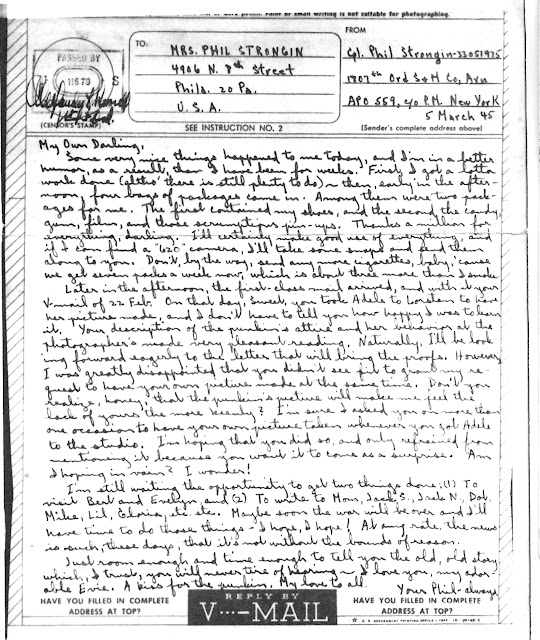 suitable for photographing.
PASSED BY
11679
U S
(CENSOR'S STAMP)
TO:
MRS. PHIL STRONGIN
4906 N. 8th Street
Phila. 20 Pa.
U.S.A.
SEE INSTRUCTION NO. 2
FROM
Cpl. Phil Strongin-33051975
1907th Ord S & M Co, Avn
APO 559, c/o P.M. New York
5 March 45
(Sender's complete address above)
My Own Darling,
Some very nice things happened to me today, and I'm in a better
humor, as a result, than I have been for weeks. First, I got a lotta
work done (altho' there is still plenty to do) & then, early in the after-
noon, four bags of packages came in. Among them were two pack-
ages for me. The first contained my shoes, and the second the candy,
gum, film, and those scrumptious pin-ups. Thanks a million for
everything, darling. I'll certainly make good use of everything, and
if I can find a '620' camera, I'll take some snaps and send them
along to you. Don't, by the way, send any more cigarettes, baby, 'cause
we get seven packs a week now, which is about three more than I smoke
Later in the afternoon, the first-class mail arrived, and with it your
V-mail of 22 Feb. On that day, Sweet, you took Adele to Lorstan to have
her picture made, and I don't have to tell you how happy I was to learn
it. Your description of the punkin's attire and her behavior at the
photographer's made very pleasant reading. Naturally, I'll be look-
ing forward eagerly to the letter that will bring the proofs. However,
I was greatly disappointed that you didn't see fit to grant my re-
quest to have your own picture made at the same time. Don't you
realize, honey, that the punkin's picture will make me feel the
lack of yours the more keenly? I'm sure I asked you on more than
one occasion to have your own picture taken whenever you got Adele
to the studio. I'm hoping that you did so, and only refrained from
mentioning it because you want it to come as a surprise. Am
I hoping in vain? I wonder!
I'm still waiting the opportunity to get two things done: (1) To
visit Bert and Evelyn, and (2) To write to Mom, Jack S., Jack N., Dot,
Mike, Lil, Gloria, etc. etc. Maybe soon the war will be over and I'll
have time to do those things - I hope, I hope! At any rate, the news
is such, these days, that it's not without the bounds of reason.
Just room enough and time enough to tell you the old, old story
which, I trust, you will never tire of hearing ~ I love you, my ador-
able Evie. A kiss for the punkin. My love to all.
Your Phil - always
HAVE YOU FILLED IN COMPLETE
ADDRESS AT TOP?
REPLY BY
V···-MAIL
HAVE YOU FILLED IN COMPLETE
ADDRESS AT TOP?
U. S. GOVERNMENT PRINTING OFFICE